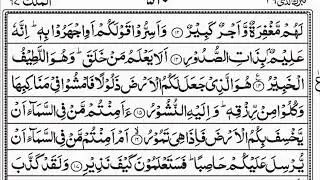 الملك ٦٧
لَهُمْ مَّغْفِرَةٌ وَّاَجْرٌ كَبِيْرٌ ۝١٢ وَاَسِرُّوْا قَوْلَكُمْ اَوِ اجْهَرُوْا بِهٖ ؕ اِنَّهٗ
عَلِيْمٌۢ بِذَاتِ الصُّدُوْرِ ۝١٣ اَلَا يَعْلَمُ مَنْ خَلَقَ ؕ وَهُوَ اللَّطِيْفُ
الْخَبِيْرُ ۝١٤ هُوَ الَّذِيْ جَعَلَ لَكُمُ الْاَرْضَ ذَلُوْلًا فَامْشُوْا فِيْ مَنَاكِبِهَا
وَكُلُوْا مِنْ رِّزْقِهٖ ؕ وَاِلَيْهِ النُّشُوْرُ ۝١٥ ءَاَمِنْتُمْ مَّنْ فِي السَّمَآءِ اَنْ
يَّخْسِفَ بِكُمُ الْاَرْضَ فَاِذَا هِيَ تَمُوْرُ ۝١٦ اَمْ اَمِنْتُمْ مَّنْ فِي السَّمَآءِ اَنْ
يُّرْسِلَ عَلَيْكُمْ حَاصِبًا ؕ فَسَتَعْلَمُوْنَ كَيْفَ نَذِيْرِ ۝١٧ وَلَقَدْ كَذَّبَ